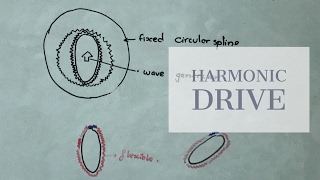 fixed circular spline
wave gen
HARMONIC
DRIVE
flexible